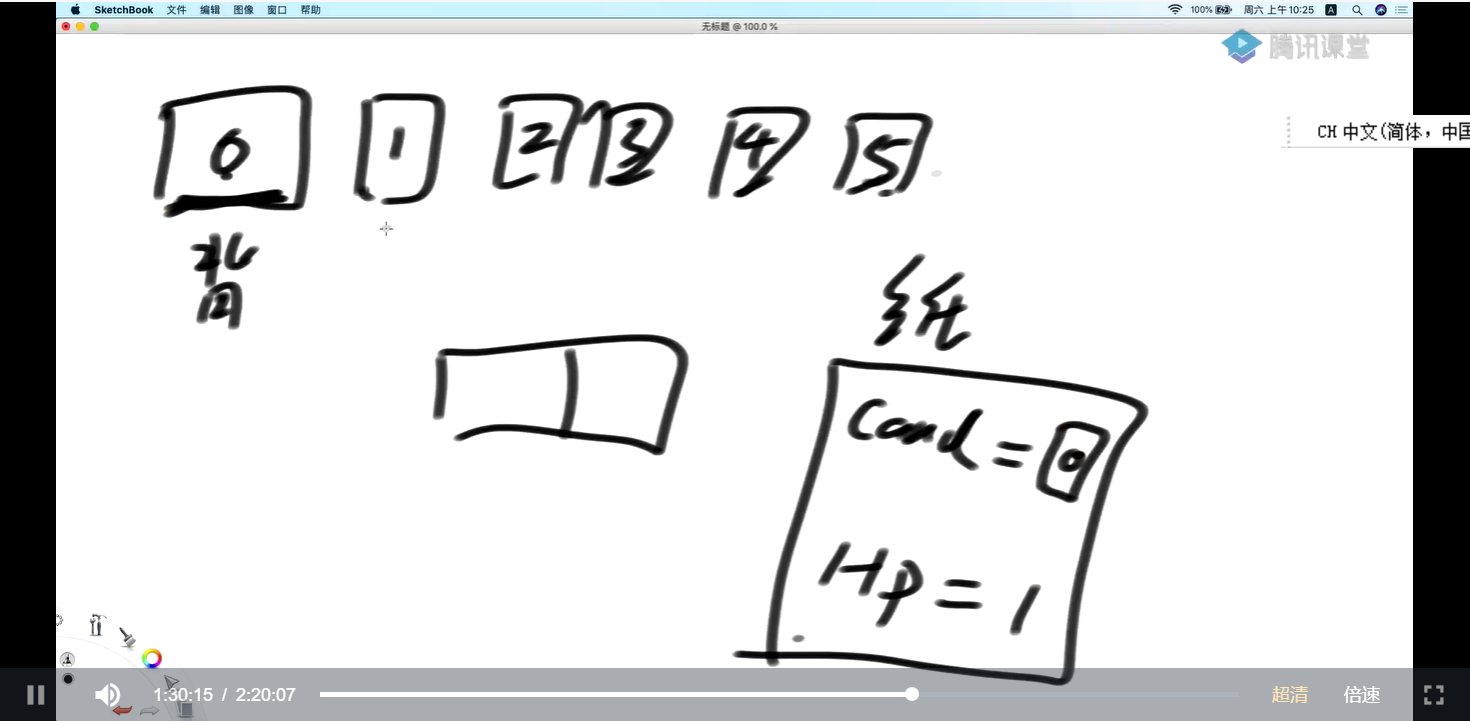 SketchBook 文件 编辑 图像 窗口 帮助 100% 周六 上午10:25 A
无标题 @ 100.0 %
腾讯课堂
CH 中文(简体，中国
0 1 2 3 4 5
背
纸
Cond = 0
Hp = 1
1:30:15 / 2:20:07 超清 倍速